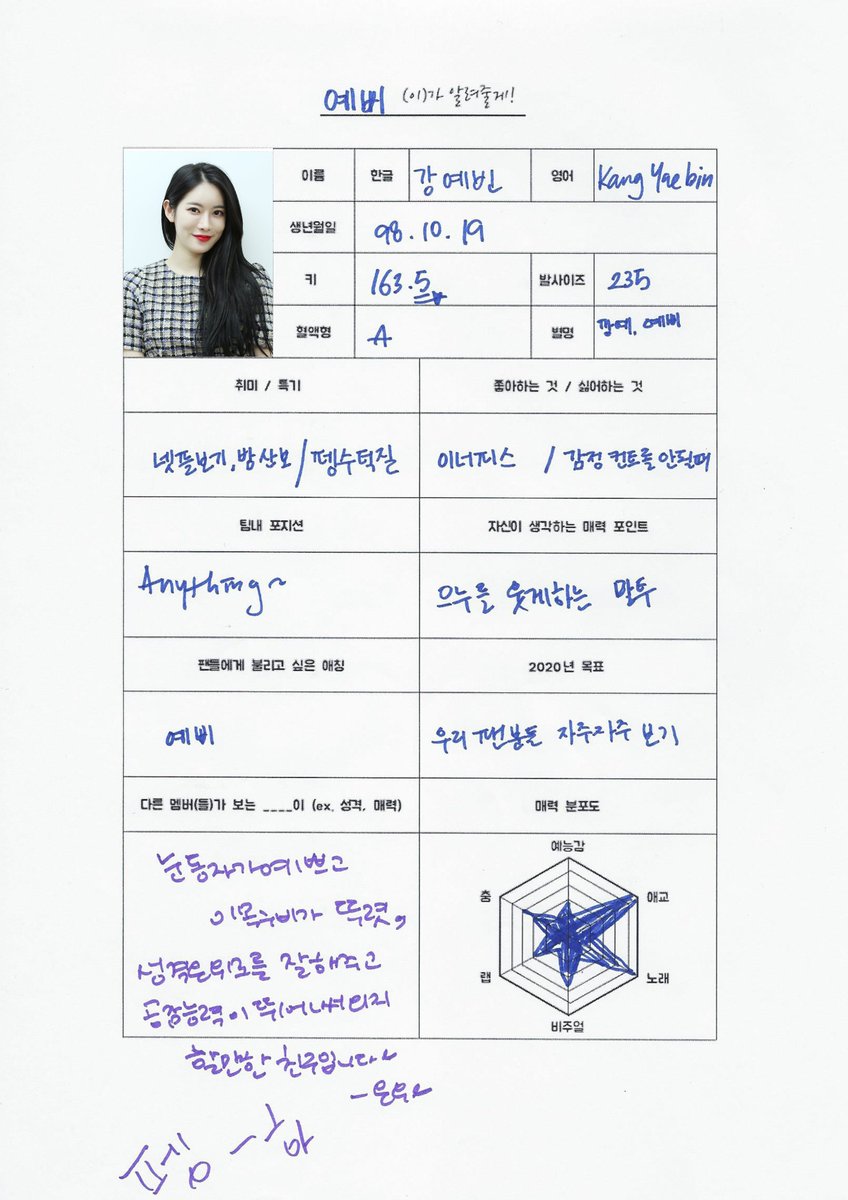 예삐 (이)가 알려줄게!
이름 한글 강예빈 영어 Kang Yae bin
생년월일 98.10.19
키 163.5 발사이즈 235
혈액형 A 별명 깡예, 예삐
취미 / 특기 좋아하는 것 / 싫어하는 것
넷플보기, 밤산보 / 펭수덕질 이너피스 / 감정 컨트롤 안될때
팀내 포지션 자신이 생각하는 매력 포인트
Anything~ 으누를 웃게하는 말투
팬들에게 불리고 싶은 애칭 2020년 목표
예삐 우리 팬분들 자주자주 보기
다른 멤버(들)가 보는 ____이 (ex. 성격, 매력) 매력 분포도
눈동자가 예쁘고
이목구비가 뚜렷,
성격은 위로를 잘해주고
공감능력이 뛰어나서 의지
할만한 친구입니다~
- 은우~
펭-하
예능감
춤 애교
랩 노래
비주얼